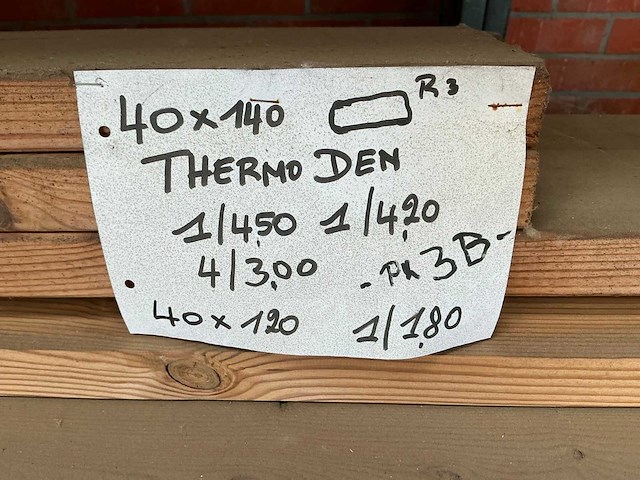 40 x 140 R3
THERMO DEN
1/4,50 1/4,20
4/3,00 - PK 3B-
40 x 120 1/1,80